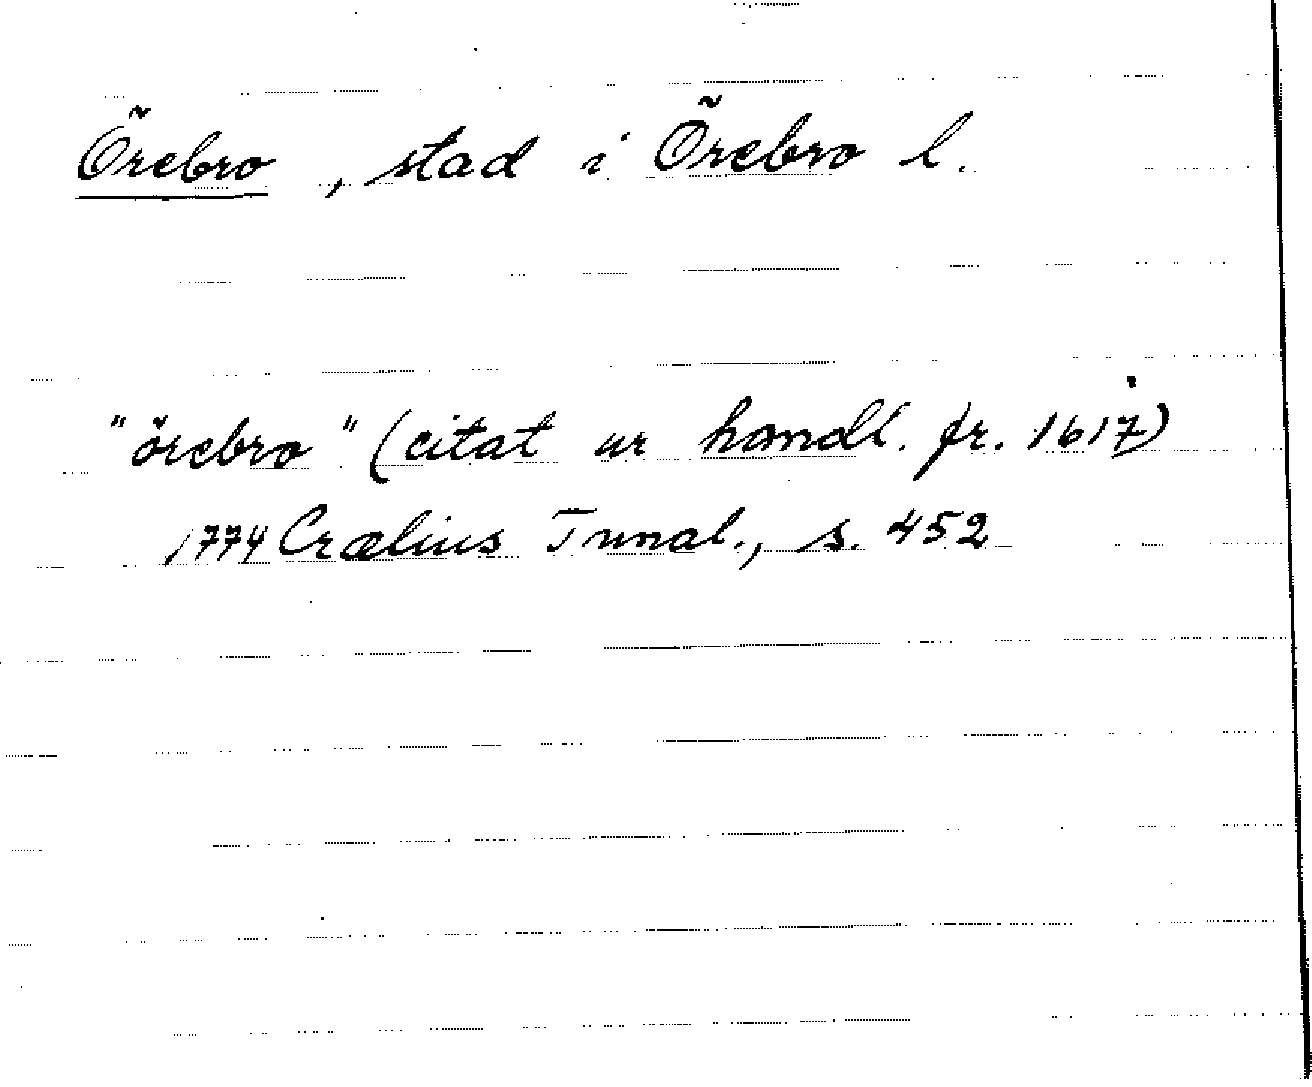 Örebro, stad i Örebro l.
"örebro" (citat ur handl. fr. 1617)
1774 Crælius Tunal., s. 452